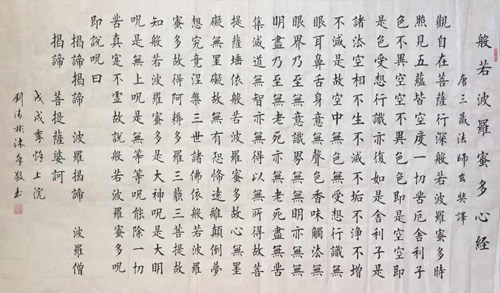 般若波羅蜜多心經
唐三藏法師玄奘譯
觀自在菩薩行深般若波羅蜜多時
照見五蘊皆空度一切苦厄舍利子
色不異空空不異色色即是空空即
是色受想行識亦復如是舍利子是
諸法空相不生不滅不垢不淨不增
不減是故空中無色無受想行識無
眼耳鼻舌身意無色聲香味觸法無
眼界乃至無意識界無無明亦無無
明盡乃至無老死亦無老死盡無苦
集滅道無智亦無得以無所得故菩
提薩埵依般若波羅蜜多故心無罣
礙無罣礙故無有恐怖遠離顛倒夢
想究竟涅槃三世諸佛依般若波羅
蜜多故得阿耨多羅三藐三菩提故
知般若波羅蜜多是大神呪是大明
呪是無上呪是無等等呪能除一切
苦真實不虛故說般若波羅蜜多呪
即說呪曰
揭諦揭諦 波羅揭諦 波羅僧
揭諦 菩提薩婆訶
戊戌季 上浣
劉 沐手敬書